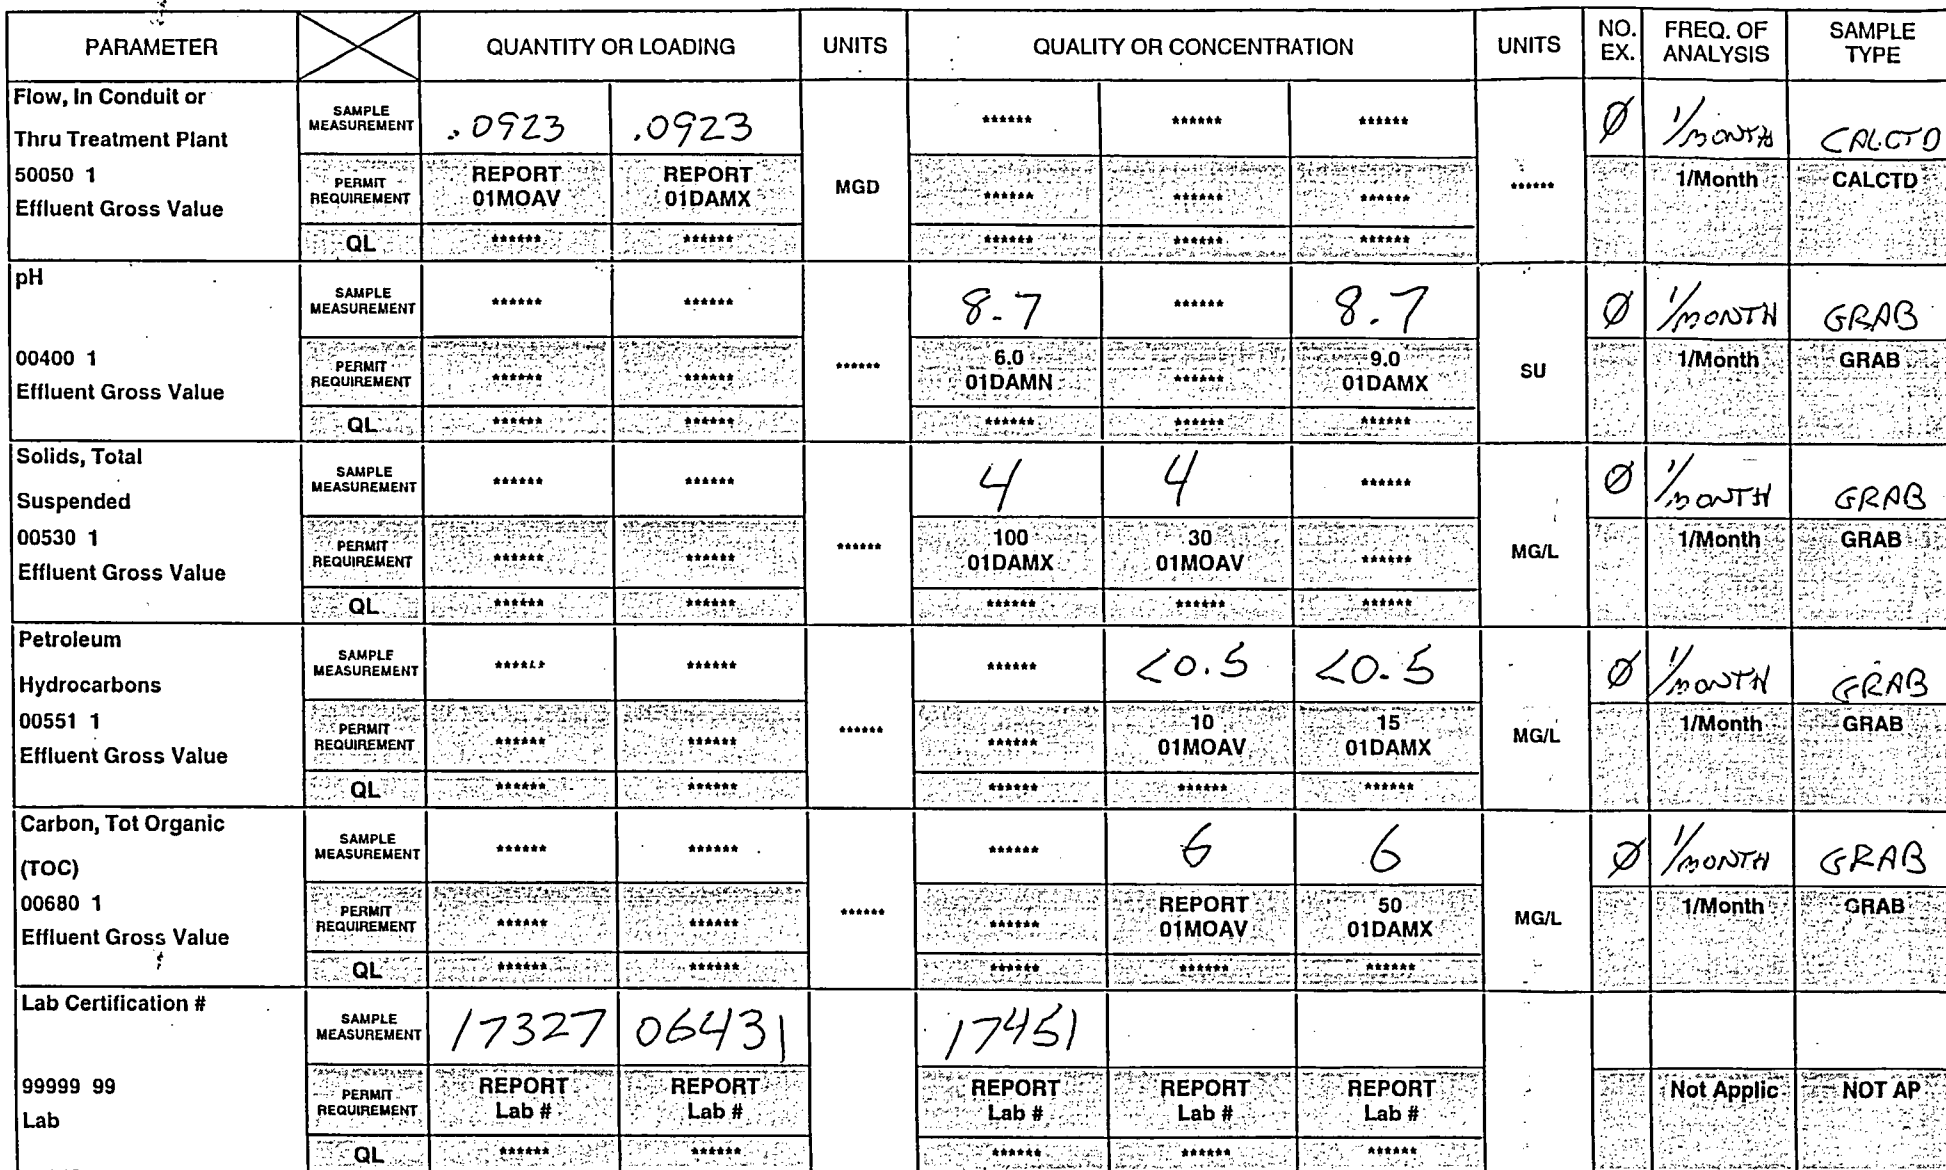 PARAMETER QUANTITY OR LOADING UNITS QUALITY OR CONCENTRATION UNITS NO. EX. FREQ. OF ANALYSIS SAMPLE TYPE
Flow, In Conduit or
Thru Treatment Plant
50050 1
Effluent Gross Value
SAMPLE MEASUREMENT .0923 .0923 ****** ****** ****** Ø 1/MONTH CALCTD
PERMIT REQUIREMENT REPORT 01MOAV REPORT 01DAMX MGD ****** ****** ****** ****** 1/Month CALCTD
QL ****** ****** ****** ****** ******
pH
00400 1
Effluent Gross Value
SAMPLE MEASUREMENT ****** ****** 8.7 ****** 8.7 Ø 1/MONTH GRAB
PERMIT REQUIREMENT ****** ****** ****** 6.0 01DAMN ****** 9.0 01DAMX SU 1/Month GRAB
QL ****** ****** ****** ****** ******
Solids, Total
Suspended
00530 1
Effluent Gross Value
SAMPLE MEASUREMENT ****** ****** 4 4 ****** Ø 1/MONTH GRAB
PERMIT REQUIREMENT ****** ****** ****** 100 01DAMX 30 01MOAV ****** MG/L 1/Month GRAB
QL ****** ****** ****** ****** ******
Petroleum
Hydrocarbons
00551 1
Effluent Gross Value
SAMPLE MEASUREMENT ****** ****** ****** <0.5 <0.5 Ø 1/MONTH GRAB
PERMIT REQUIREMENT ****** ****** ****** ****** 10 01MOAV 15 01DAMX MG/L 1/Month GRAB
QL ****** ****** ****** ****** ******
Carbon, Tot Organic
(TOC)
00680 1
Effluent Gross Value
SAMPLE MEASUREMENT ****** ****** ****** 6 6 Ø 1/MONTH GRAB
PERMIT REQUIREMENT ****** ****** ****** ****** REPORT 01MOAV 50 01DAMX MG/L 1/Month GRAB
QL ****** ****** ****** ****** ******
Lab Certification #
99999 99
Lab
SAMPLE MEASUREMENT 17327 06431 17451
PERMIT REQUIREMENT REPORT Lab # REPORT Lab # REPORT Lab # REPORT Lab # REPORT Lab # Not Applic NOT AP
QL ****** ****** ****** ****** ******